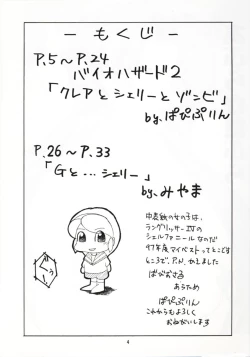 － もくじ －
P.5～P.24
バイオハザード2
「クレアとシェリーとゾンビ」
by.ぱぴぷりん
P.26～P.33
「Gと...シェリー」
by.みやま
中表紙の女の子は、
ラングリッサーIVの
シェルファニールなのだ
97年度マイベストってとこです
ところで、P.N.かえました
ばびおさる
あらため
ぱぴぷりん
これからもよろしく
おねがいします
4